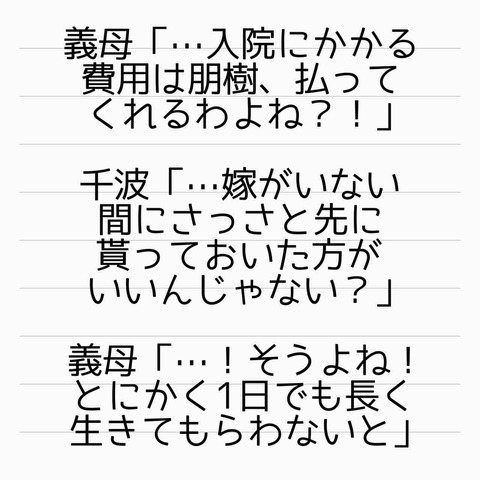 義母「…入院にかかる
費用は朋樹、払って
くれるわよね？！」
千波「…嫁がいない
間にさっさと先に
貰っておいた方が
いいんじゃない？」
義母「…！そうよね！
とにかく1日でも長く
生きてもらわないと」